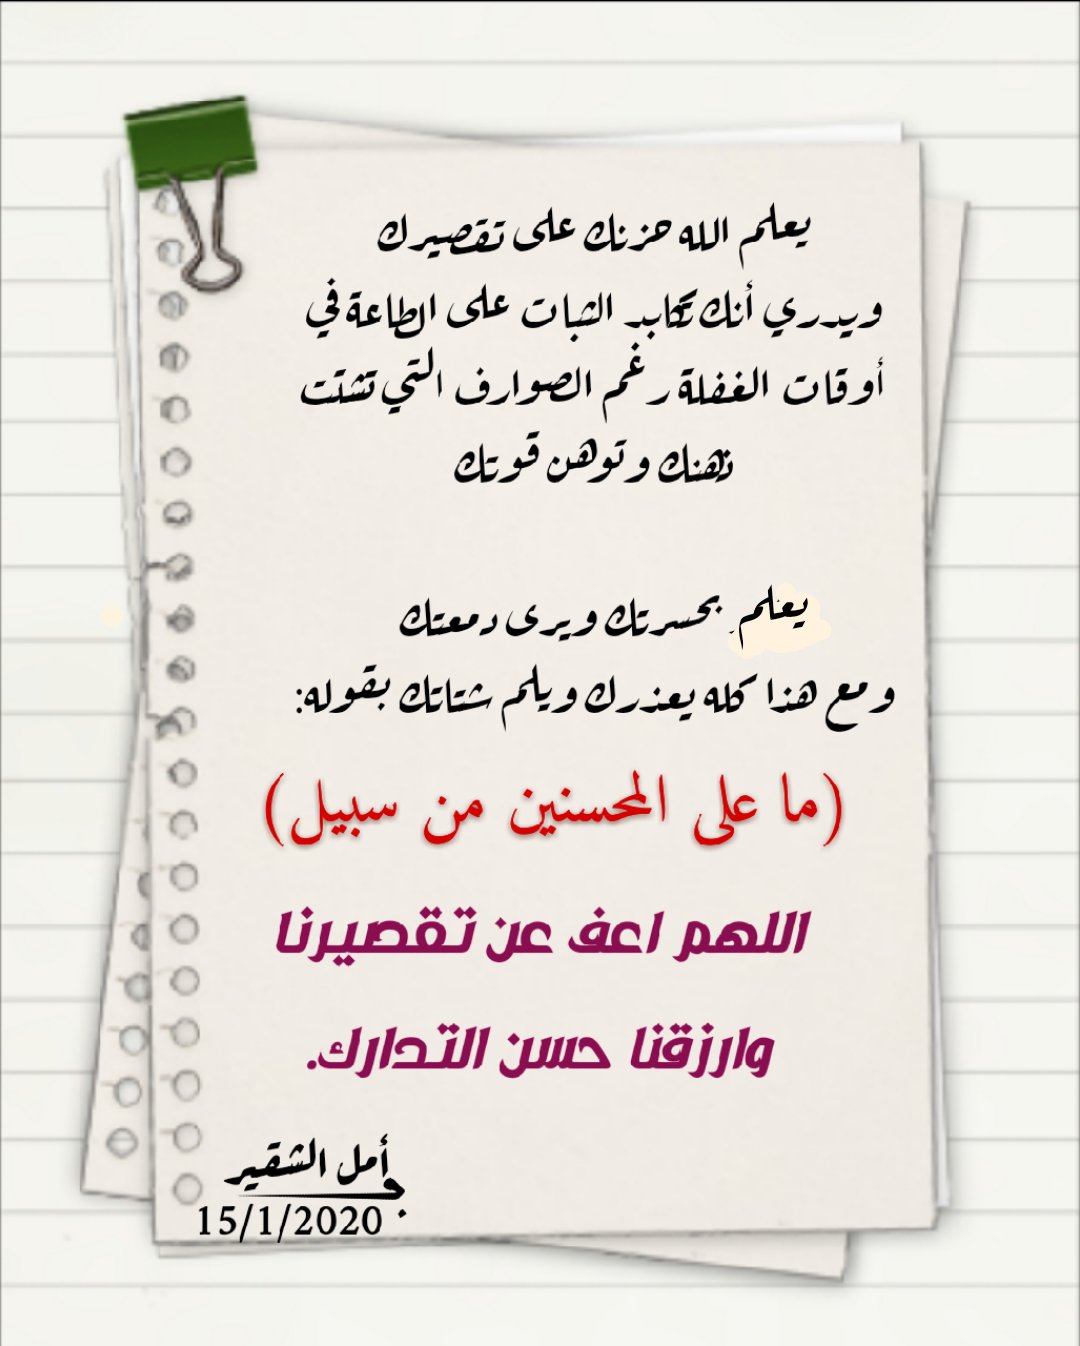 يعلم الله حزنك على تقصيرك
ويدري أنك تكابد الثبات على الطاعة في
أوقات الغفلة رغم الصوارف التي تشتت
ذهنك وتوهن قوتك
يعلم بحسرتك ويرى دمعتك
ومع هذا كله يعذرك ويلم شتاتك بقوله:
(ما على المحسنين من سبيل)
اللهم اعف عن تقصيرنا
وارزقنا حسن التدارك.
أمل الشقير
15/1/2020